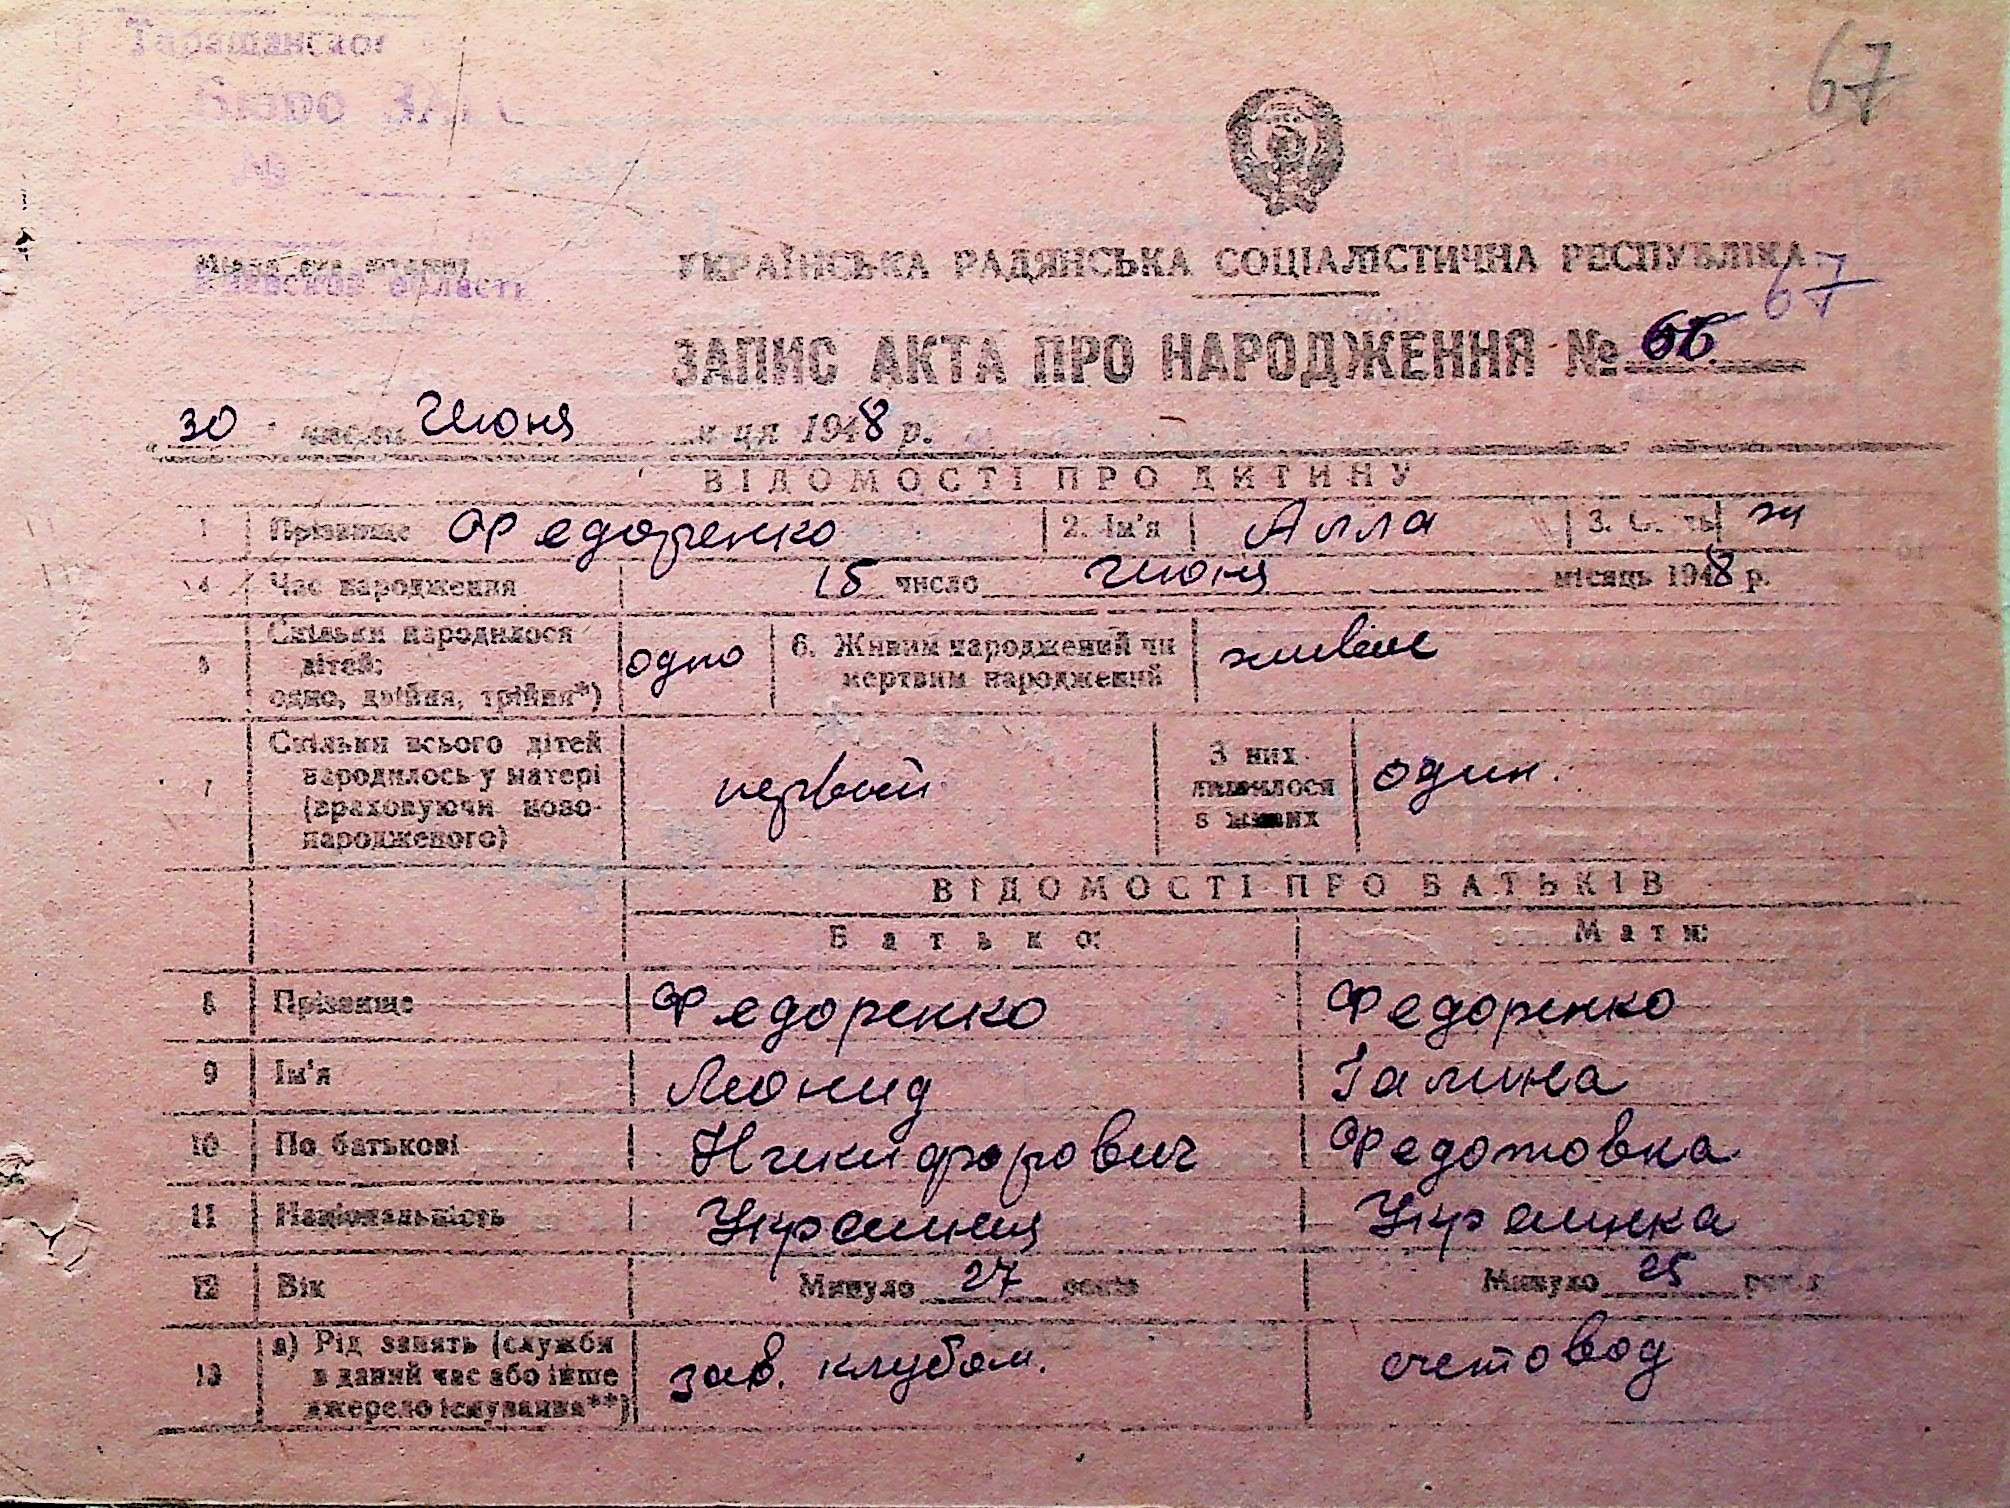 67
Таращанское
бюро ЗАГС
№
Киевской области
УКРАЇНСЬКА РАДЯНСЬКА СОЦІАЛІСТИЧНА РЕСПУБЛІКА
67
ЗАПИС АКТА ПРО НАРОДЖЕННЯ № 66
"30" числа Июня м ця 1948 р.
ВІДОМОСТІ ПРО ДИТИНУ
1 Прізвище Федоренко 2. Ім'я Алла 3. Стать ж
4 Час народження 15 число Июня місяць 1948 р.
5 Скільки народилося дітей: одно, двійня, трійня*) одно 6. Живим народжений чи мертвим народжений живые
7 Скільки всього дітей народилось у матері (враховуючи новонародженого) первый З них лишилося в живих один.
ВІДОМОСТІ ПРО БАТЬКІВ
Батько: Мати:
8 Прізвище Федоренко Федоренко
9 Ім'я Леонид Галина
10 По батькові Никифорович Федотовна
11 Національність Украинец Украинка
12 Вік Минуло 27 років Минуло 25 років
13 а) Рід занять (служби в даний час або інше джерело існування**) зав. клубом. счетовод